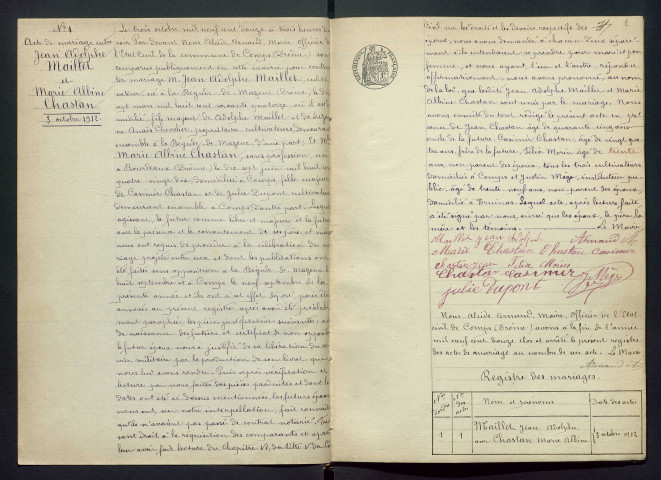 N° 1
Acte de mariage entre
Jean Adolphe
Maillet
et
Marie Albine
Chastan
3 octobre 1912
Le trois octobre mil neuf cent douze à trois heures du
soir Par devant Nous Alcide Arnaud, Maire, Officier de
l'Etat civil de la commune de Comps (Drôme) sont
comparus publiquement en cette mairie pour contrac-
ter mariage M. Jean Adolphe Maillet, culti-
vateur, né à la Bégude-de-Mazenc Drôme, le
mai mil huit cent soixante quatorze, où il est
domicilié, fils majeur de Adolphe Maillet et de
Anaïs Chevalier, propriétaires cultivateurs, demeurant
ensemble à la Bégude-de-Mazenc, d'une part; Et Mlle
Marie Albine Chastan, sans profession, née
à Bourdeaux (Drôme) le dix sept juin mil huit cent
quatre vingt dix, domiciliée à Comps, fille majeure
de Casimir Chastan et de Julie Dupont cultivateurs
demeurant ensemble à Comps d'autre part. Lesquels
agissant, le futur comme libre et majeur et la future
avec la présence et le consentement de ses père et mère
nous ont requis de procéder à la célébration du ma-
riage projeté entre eux et dont les publications ont
été faites sans opposition à la Bégude-de-Mazenc le
huit septembre et à Comps le neuf septembre de la
présente année et ils ont à cet effet déposé, pour être
annexées au présent registre, après avoir été préalable-
ment paraphées, les pièces justificatives suivantes: actes
de naissance des futurs et certificat de non opposition
Le futur époux nous a justifié de sa libération du ser-
vice militaire par la production de son livret que
nous lui avons rendu. Puis, après vérification et
lecture par nous faite des pièces produites et dont les
dates ont été ci-dessus mentionnées, les futurs époux
nous ont, sur notre interpellation, fait connaître
qu'ils n'avaient pas passé de contrat notarié. Fai-
sant droit à la réquisition des comparants et après
leur avoir fait lecture du Chapitre VI, du titre V du Code
2
Civil sur les droits et les devoirs respectifs des
époux, nous avons demandé à chacun d'eux séparé-
ment s'ils entendaient se prendre pour mari et pour
femme, et nous ayant, l'un et l'autre, répondu
affirmativement, nous avons prononcé, au nom
de la loi, que lesdits Jean Adolphe Maillet et Marie
Albine Chastan sont unis par le mariage. Nous
avons ensuite du tout rédigé le présent acte en pré-
sence de Jean Chastan âgé de quarante cinq ans
oncle de la future, Casimir Chastan, âgé de vingt qua-
tre ans, frère de la future, Félix Morin âgé de trente
ans, non parent des époux, tous les trois cultivateurs
domiciliés à Comps et Justin Mège, instituteur pu-
blic, âgé de trente neuf ans, non parent des époux,
domicilié à Truinas. Lequel acte, après lecture faite
a été signé par nous, ainsi que les époux, le père, la
mère et les témoins. Le Maire
Maillet jean adolphe Arnaud A.
Marie Chastan Chastan Casimir
Chastan Jean Félix Morin
Chastan Casimir Mège
julie Dupont
Nous, Alcide Arnaud, Maire, Officier de l'Etat
civil de Comps (Drôme) avons à la fin de l'année
mil neuf cent douze, clos et arrêté le présent registre
des actes de mariage au nombre de un acte. Le Maire
Arnaud A.
Registre des mariages.
Nos d'ordre Nos des actes Nom et prénoms Date des actes
1 1 Maillet Jean Adolphe 3 octobre 1912
avec Chastan Marie Albine